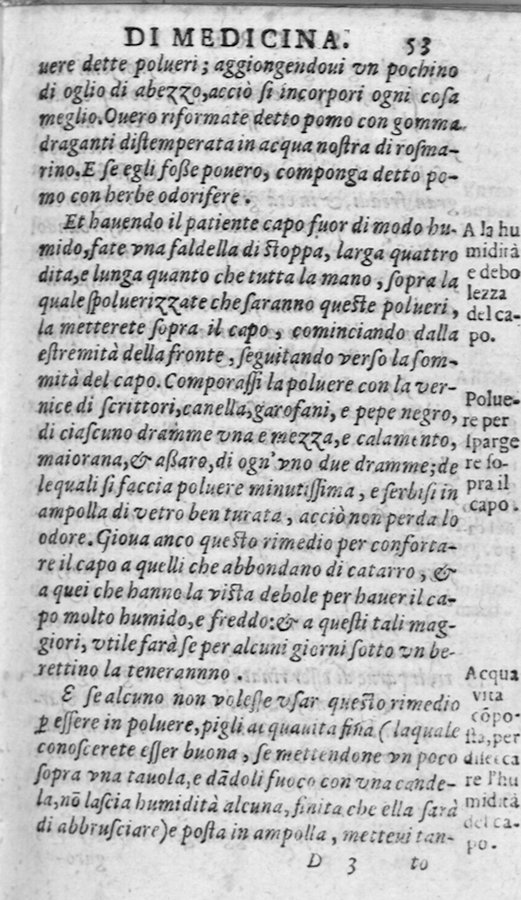 DI MEDICINA. 53
uere dette polueri; aggiongendoui vn pochino
di oglio di abezzo, acciò si incorpori ogni cosa
meglio. Ouero riformate detto pomo con gomma
draganti distemperata in acqua nostra di rosma-
rino. E se egli foße pouero, componga detto po-
mo con herbe odorifere.
Et hauendo il patiente capo fuor di modo hu-
mido, fate vna faldella di stoppa, larga quattro
dita, e lunga quanto che tutta la mano, sopra la
quale spoluerizzate che saranno queste polueri,
la metterete sopra il capo, cominciando dalla
estremità della fronte, seguitando verso la som-
mità del capo. Comporassi la poluere con la ver-
nice di scrittori, canella, garofani, e pepe negro,
di ciascuno dramme vna e mezza, e calamento,
maiorana, & aßaro, di ogn'vno due dramme; de
lequali si faccia poluere minutissima, e serbisi in
ampolla di vetro ben turata, acciò non perda lo
odore. Gioua anco questo rimedio per conforta-
re il capo a quelli che abbondano di catarro, &
a quei che hanno la vista debole per hauer il ca-
po molto humido, e freddo: & a questi tali mag-
giori, vtile farà se per alcuni giorni sotto vn be-
rettino la teneranno
E se alcuno non volesse vsar questo rimedio
ꝑ essere in poluere, pigli acquauita fina (laquale
conoscerete esser buona, se mettendone vn poco
sopra vna tauola, e dādoli fuoco con vna cande-
la, nō lascia humidità alcuna, finita che ella sarà
di abbrusciare) e posta in ampolla, metteui tan-
D 3 to
A la hu
midità
e debo
lezza
del ca-
po.
Polue-
re per
sparge
re so-
pra il
capo.
Acqua
vita
cōpo-
sta, per
diseeca
re l'hu
midità
del ca-
po.